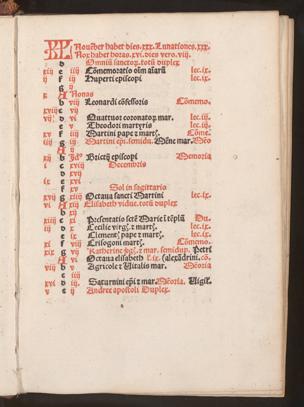 KL Nouēber habet dies. xxx. Lunationes. xxx.
Nox habet horas. xvi. dies vero. viij.
d Omniū sanctoꝝ. totū duplex
xiij e iiij Cōmemoratio oīm aīarū lec. ix.
ij f iij Huperti episcopi lec. ix.
g ij
x A Nonas
b viij Leonardi cōfessoris Cōmemo.
xviij c vij
vij d vi Quattuor coronatoꝝ mar. lec. iij.
e v Theodori martyris lec. iij.
xv f iiij Martini pape ⁊ mart. Cōme.
iiij g iij Martini epi. semidu. Mēne mar. Mēo
A ij
xij b Idꝰ Brictij episcopi Memoria
i c xviij Decembris
d xvij
ix e xvi
f xv Sol in sagittario
xvij g xiiij Octaua sancti Martini lec. ix.
vi A xiij Elisabeth vidue. totū duplex
b xij
xiiij c xi Presentatio scte Marie ī tēplū Du.
iij d x Cecilie virg. ⁊ mart. lec. ix.
e ix Clement. pape ⁊ mart. lec. ix.
xi f viij Crisogoni mart. Cōmemo.
xix g vij Katherine v. ⁊ mar. semidup. Petri
A vi Octaua elisabeth l. ix. (alexādrini. cō.
viij b v Agricole ⁊ Uitalis mar. Mēoria
c iiij
xvi d iij Saturnini epi ⁊ mar. Mēoria. Uigil.
v e ij Andree apostoli Duplex